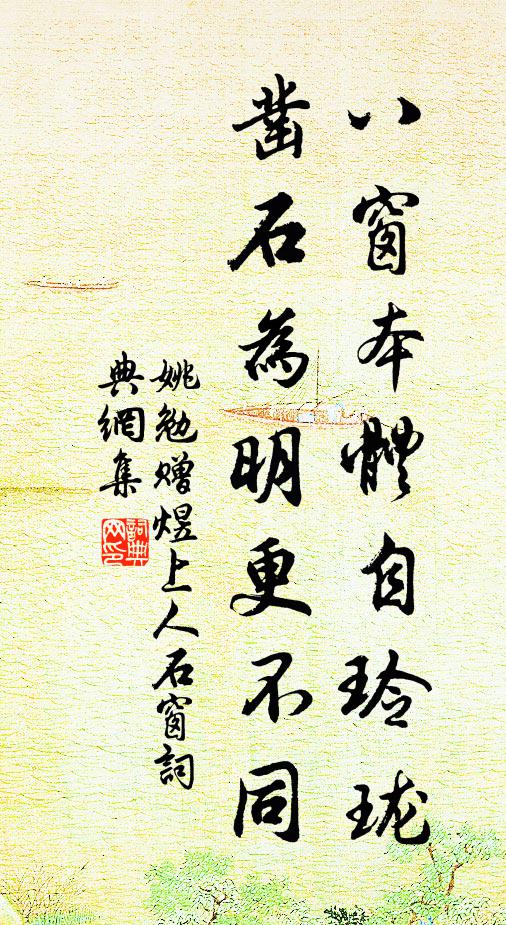 八窗本體自玲珑
凿石為明更不同
姚勉赠煜上人石窗詞
典網集
詞典网印